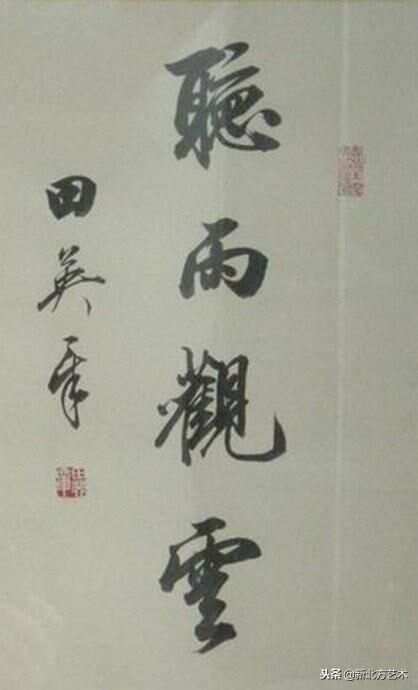 聽雨觀雲
田英章
头条@新北方艺术